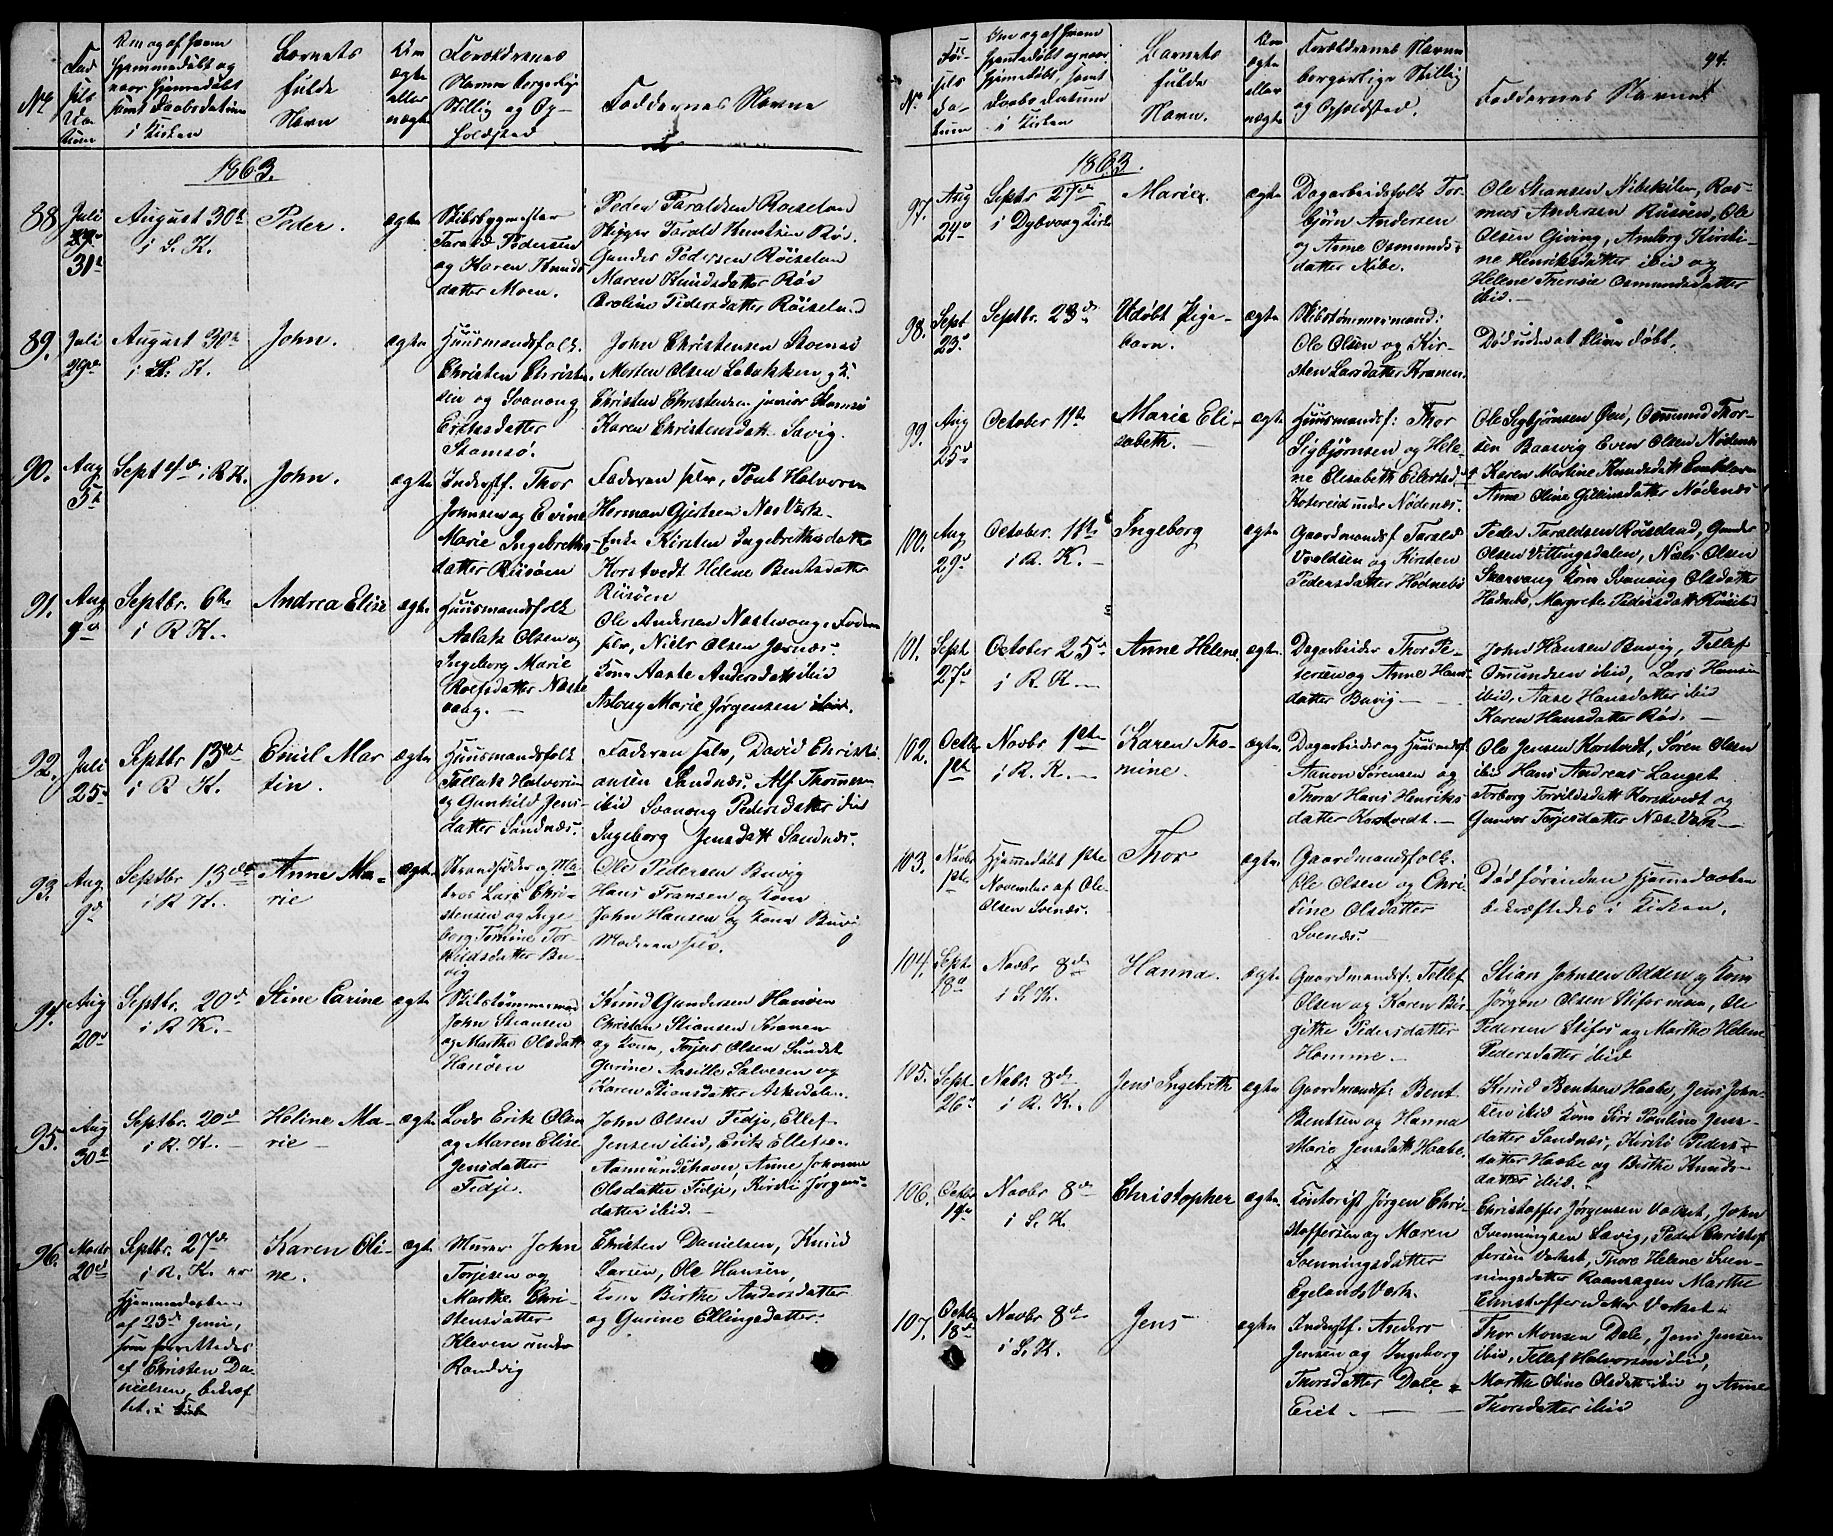 No
Fød
sels
Da
tum
Om og af hvem
hjemmedøbt og
naar hjemmedøbt
samt Daabsdatum
i Kirken
Barnets
fulde
Navn
Om
ægte
eller
uægte
Forældrenes
Navne borgerlig
Stillig og Op-
holdssted
Faddernes Navne
1863.
88
Juli
31te
August 30te
i S. K.
Peder.
ægte
Skibsbygmester
Tarald Pedersen
og Karen Knuds
datter Moen.
Peder Taraldsen Røiseland
Skipper Tarald Knudsen Røe
Gunder Pedersen Røiseland
Maren Knudsdatter Røe
Caroline Pedersdatter Røiseland
89.
Juli
29de
August 30te
i S. K.
John.
ægte
Huusmandsfolk.
Christen Christen
sen og Svanoug
datter
Stamsø.
John Christensen Stamsø
Morten Olsen Løbakken
Christen Christensen junior Stamsø
Karen Christensdatt. Savig.
90.
Aug
5te
Sept 6te i R K.
John.
ægte
Inderstf. Thor
Johnsen og Evine
Marie Ingebrethsd-
datter Risøen
Faderen selv, Poul Halvorsen
Herman Gjertsen Næs Værk
Enke Kirsten Ingebrethsdatter
Korstvedt Helene Bentsdatter
Risøen
91.
Aug
9de
Septbr. 6te
i R K.
Andrea Elise
ægte
Huusmandsfolk
Aslak Olsen og
Ingeborg Marie
Roefsdatter Næste
vaag.
Ole Andersen Næstvaag, Faderen
selv, Niels Olsen Jernæs.
Kone Aaste Andersdatt ibid
Aslaug Marie Jørgensen ibid.
92.
Juli
25de
Septbr 13de
i R K.
Emil Mar
tin.
ægte
Huusmandsfolk
Tallak Halvorsen
og Gunhild Jens-
datter Sandnæs.
Faderen selv, David Christi
ansen Sandnæs, Alf Thommesen
ibid Svanoug Pedersdatter ibid
Ingeborg Jensdatt Sandnæs.
93.
Aug
9de
Septbr 13de
i R K.
Anne Ma-
rie
ægte
Strandsidder og Ma-
tros Lars Chri-
stensen og Inge
borg Tomine Tor-
kildsdatter Bu-
vig
Ole Pedersen Buvig
Hans Fransen og Kone
John Hansen og Kone Buvig
Moderen selv.
94.
Aug
20de
Septbr. 20de
i R K.
Stine Carine
ægte
Skibstømmermand
John Stiansen
og Marthe Olsdatt
Hanøen
Knud Gundersen Hanøen
Christen Stiansen Kranen
og Kone, Torjus Olsen Sundet
Gurine Salvesen og
Karen Stiansdatter Askedalen.
95.
Aug
30te
Septbr. 20de
i R. K.
Heline Ma-
rie
ægte
Lods Erik Olsen
og Maren Elise
Jensdatter
Fidje.
John Olsen Fidje, Ellef
Jensen ibid, Erik Ellefsen
Aasmundshavn, Anne Johanne
Olsdatter Fidje, Kirsti Jørgens-
datter ibid.
96.
Marts
20de
Septbr. 27de
i R. K. er
Hjemmedaaben
af 23de Juni,
som forrettedes
af Christen Da-
nielsen, bekræf
tet i Kirken
Karen Oli-
ne.
ægte
Murer John
Torjesen og
Marthe Chri-
stensdatter
Kleven under
Randvig
Christen Danielsen, Knud
Larsen, Ole Hansen,
Kone Birthe Andersdatter
og Gurine Ellingsdatter.
94.
No
Fød
sels
da-
tum
Om og af hvem
hjemmedøbt og naar
hjemmedøbt, samt
Daabs datum
i Kirken
Barnets
fulde
Navn.
Om
ægte
eller
uægte
Forældrenes Navne
borgerlige Stillig
og Opholdsted.
Faddernes Navne
1863.
97.
Aug
24de
Septbr 27de
i Dybvaag Kirke
Marie.
ægte
Dagarbeidsfolk Tor-
bjørn Andersen
og Anne Osmunds-
datter Nibe.
Ole Stiansen Nibekilen, Ras-
mus Andersen Risøen, Ole
Olsen Giving, Amborg Kirsti-
ne Henriksdatter ibid og
Helene Theresie Osmundsdatter
ibid.
98.
Sept
23de
Septbr. 23de
Udøbt Pige-
barn.
ægte
Skibstømmermand:
Ole Olsen og Kir-
sten Larsdatter Kranen.
Død uden at blive døbt.
99.
Aug
25de
October 11te
Marie Eli-
sabeth.
ægte
Huusmandsf: Thor
Sigbjørnsen og Hele-
ne Elisabeth Eilertsd.
Kotereid under Nødenæs.
Ole Sigbjørnsen Øen, Osmund Thor-
sen Baasvig Even Olsen Nødenæs
Karen Martine Knudsdatt
Anne Oline Gjeruldsdatter Nødenæs
100.
Aug
29de
October. 11te
i R. K.
Ingeborg
ægte
Gaardmandsf Tarald
Voldsen og Kirsten
Pedersdatter Hødnebø
Peder Taraldsen Røiseland, Gunder
Olsen Vittingsdalen, Niels Olsen
Skarvang Kone Svanoug Olsdatter
Hødnebø, Margrethe Pedersdatt Røiseland
101.
Sept
27de
October 25de
i R. K.
Anne Helene.
ægte.
Dagarbeider Thor Pe-
dersen og Anne Hans-
datter Buvig
John Hansen Buvig, Tellef
Omundsen ibid, Lars Hansen
ibid, Aase Hansdatter ibid
Karen Hansdatter Rød.
102.
Octbr
1ste
Novbr 1ste
i R. K.
Karen Tho-
mine.
ægte.
Dagarbeider og Huusmandsf.
Aanon Sørensen og
Thora Hans Henriks
datter Korstvedt.
Ole Jensen Korstvedt, Søren Olsen
ibid Hans Andreas Langet
Torborg Torvildsdatt Korstvedt og
Gunvor Torjesdatter Næs Værk
103.
Novbr
1ste
Hjemmedøbt 1ste
November af Ole
Olsen Svenæs.
Thor
ægte.
Gaardmandsfolk.
Ole Olsen og Chri
stine Olsdatter
Svenæs.
Død førinden Hjemmedaaben
bekræftedes i Kirken.
104.
Sept
18de
Novbr 8de
i S. K.
Hanna.
ægte
Gaardmandsf: Tellef
Olsen og Karen Bir-
githe Pedersdatter
Homme.
Stian Johnsen Odden og Kone
Jørgen Olsen Stifosmoen, Ole
Pedersen Stifos og Marthe Helene
Pedersdatter ibid
105.
Sept
26de
Novbr. 8de
i R. K.
Jens Ingebreth
ægte
Gaardmandsf: Bent
Bentsen og Hanna
Marie Jensdatt Haabe.
Knud Bentsen Haabe, Jens John-
sen ibid Kone Siri Pauline Jens-
datter Sandnæs, Kirsti Peders-
datter Haabe og Birthe Knuds-
datter ibid.
106.
Octbr
14de
Novbr 8de
i S. K.
Christopher
ægte.
Kontorist Jørgen Chri-
stoffersen og Maren
Svenningsdatter
Egelands Værk.
Christoffer Jørgensen Værket, John
Svenningsen Lavig, Peder Christof
fersen Værket, Thore Helene Sven-
ningsdatter Raansagen Marthe
Christoffersdatter Værket.
107.
Octbr
18de
Novbr 8de
i S. K.
Jens
ægte
Inderstf. Anders
Jensen og Ingeborg
Thorsdatter Dale
Eiet.
Thor Monsen Dale, Jens Jensen
ibid, Tellef Halvorsen ibid,
Marthe Oline Olsdatt ibid og Anne
Thorsdatter ibid